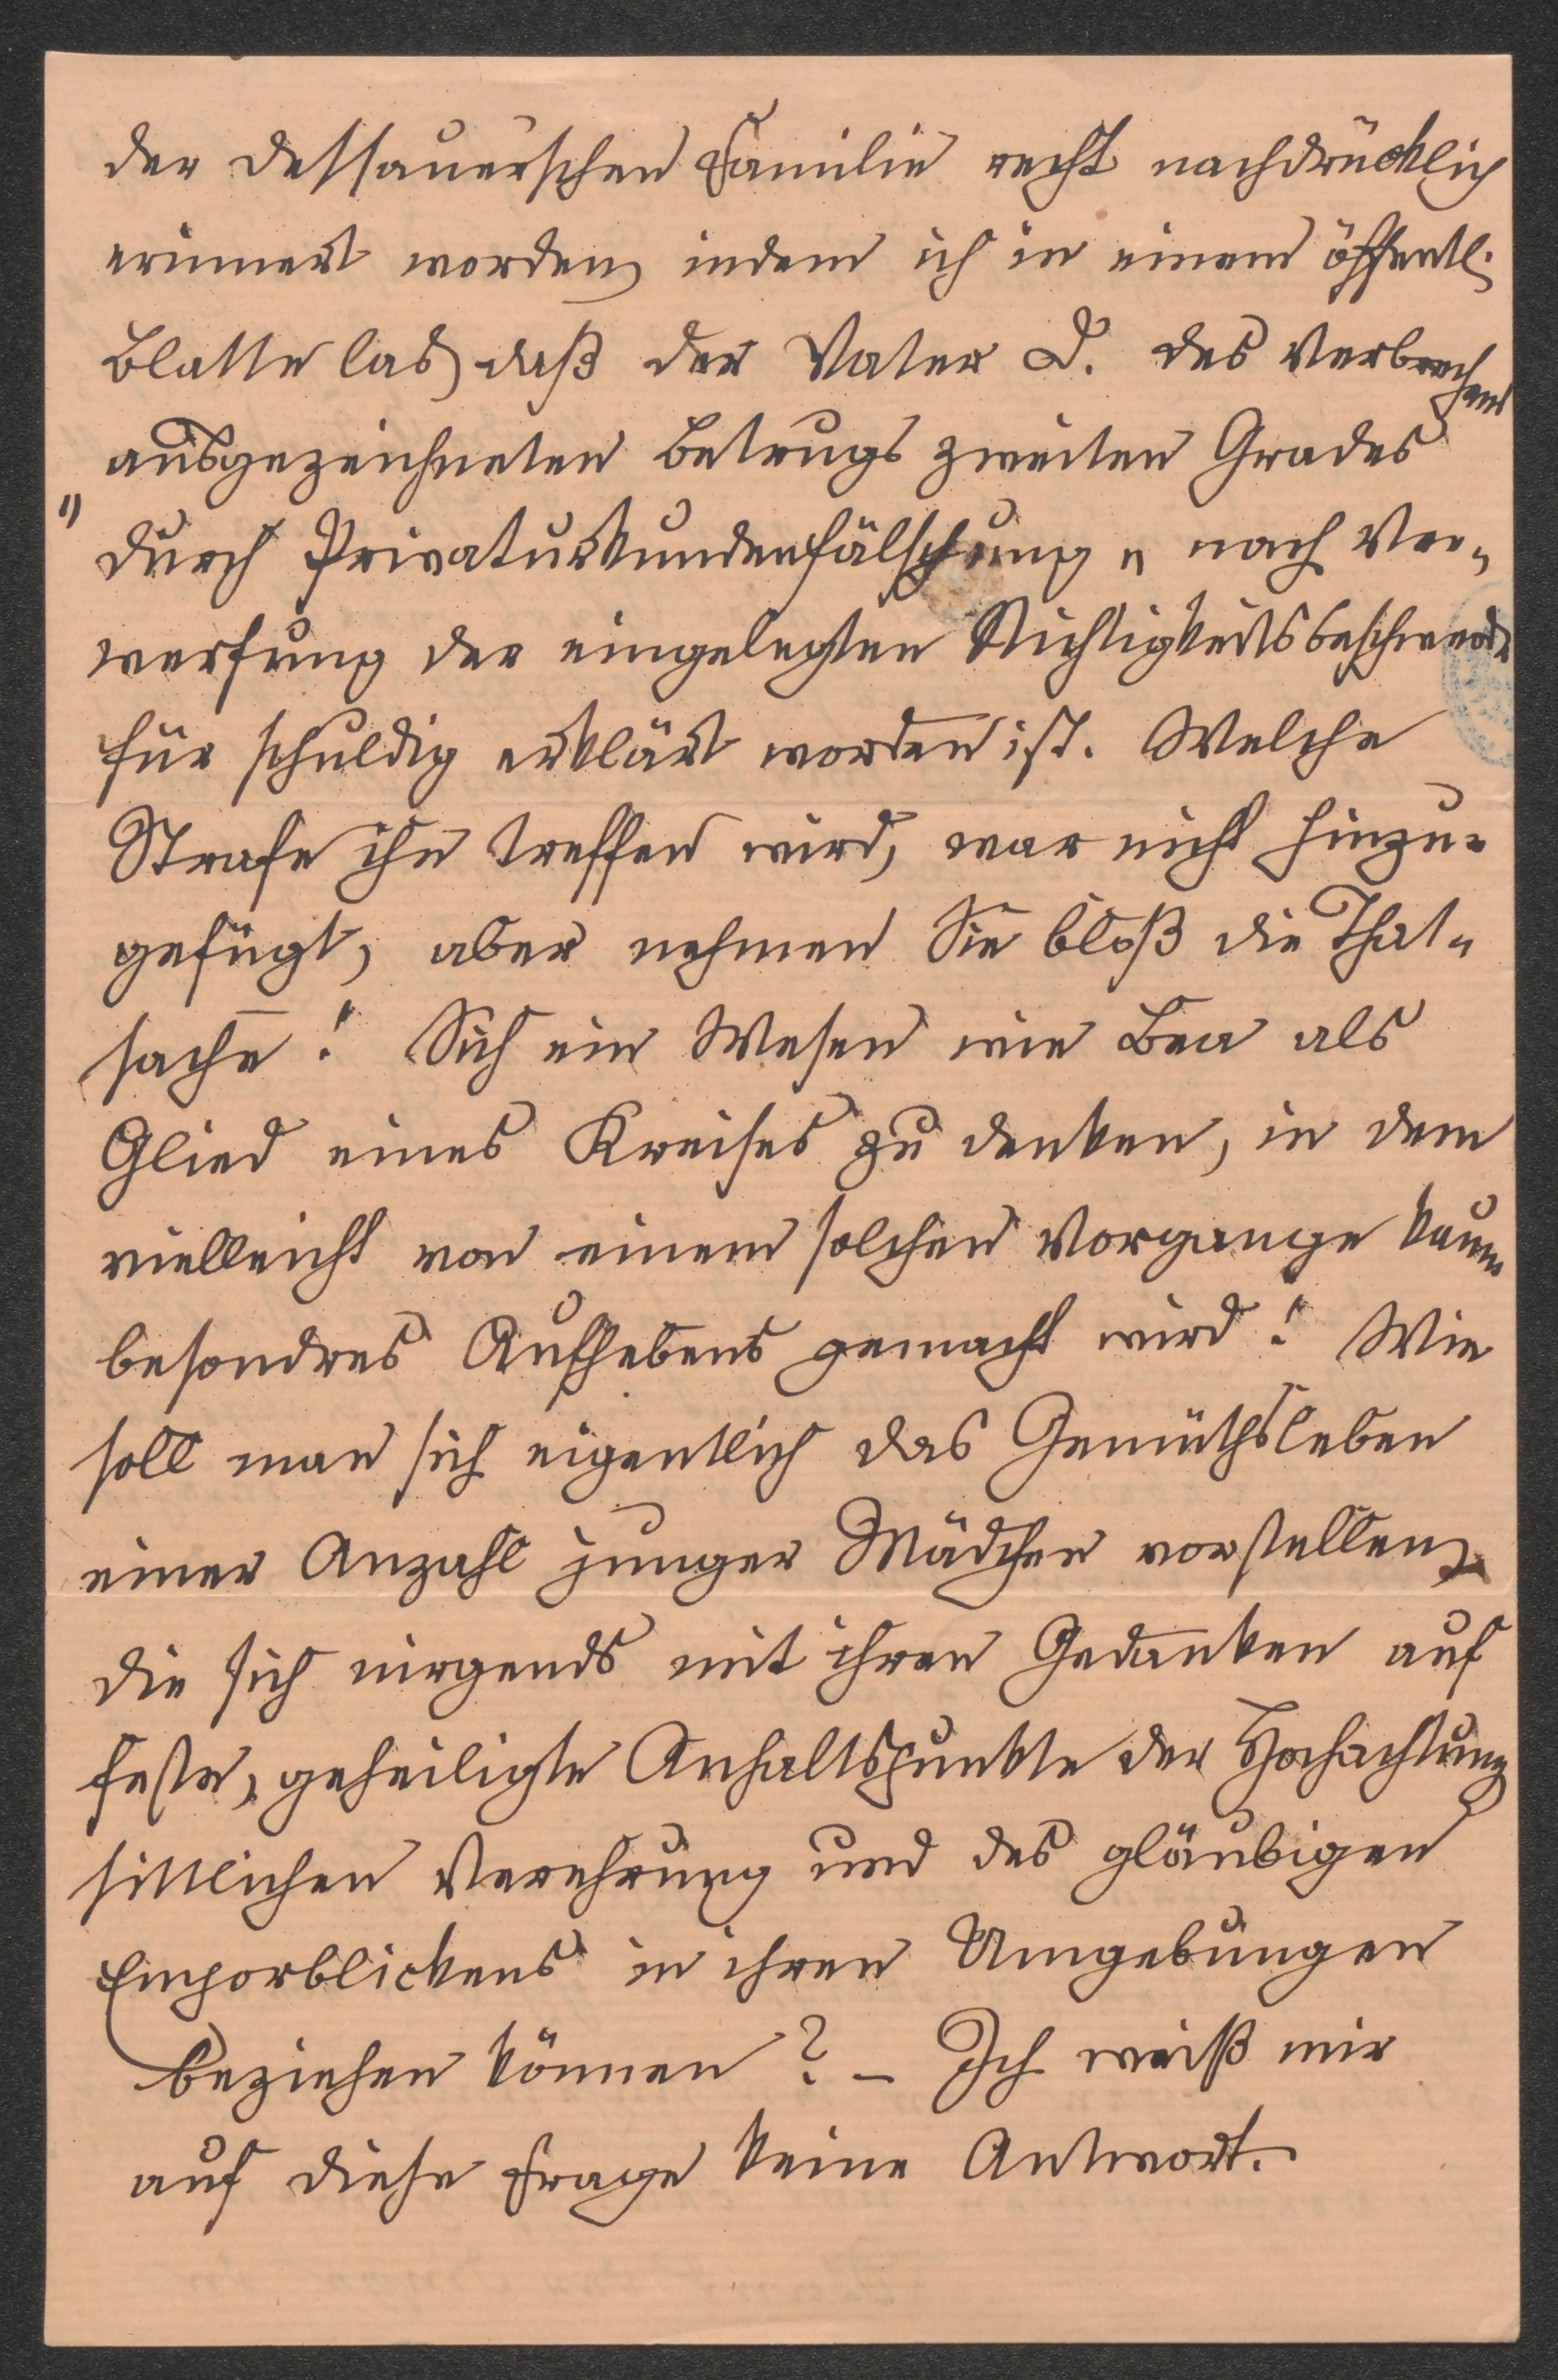 der Dessauerschen Familie recht nachdrücklich
erinnert worden, indem ich in einem öffentl.
Blatte las, daß der Vater D. des Verbrechens
ausgezeichneten Betrugs zweiten Grades
"durch Privaturkundenfälschung" nach Ver-
werfung der eingelegten Nichtigkeitsbeschwerde
für schuldig erklärt worden ist. Welche
Strafe ihn treffen wird, war nicht hinzu-
gefügt, aber nehmen Sie bloß die That-
sache! Sich ein Wesen wie Bea als
Glied eines Kreises zu denken, in dem
vielleicht von einem solchen Vorgange kaum
besondres Aufhebens gemacht wird! Wie
soll man sich eigentlich das Gemüthsleben
einer Anzahl junger Mädchen vorstellen,
die sich nirgends mit ihren Gedanken auf
feste, geheiligte Anhaltspunkte der Hochachtung,
sittlichen Verehrung und des gläubigen
Emporblickens in ihren Umgebungen
beziehen können? – Ich weiß mir
auf diese Frage keine Antwort.